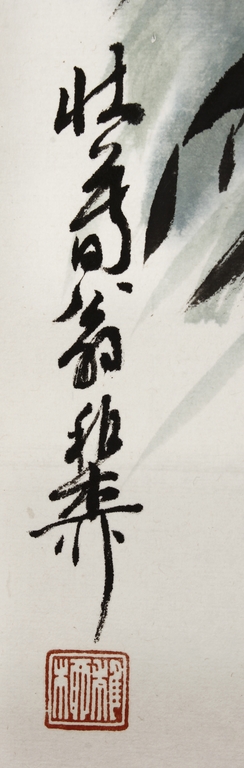 壮暮翁稚柳
稚柳